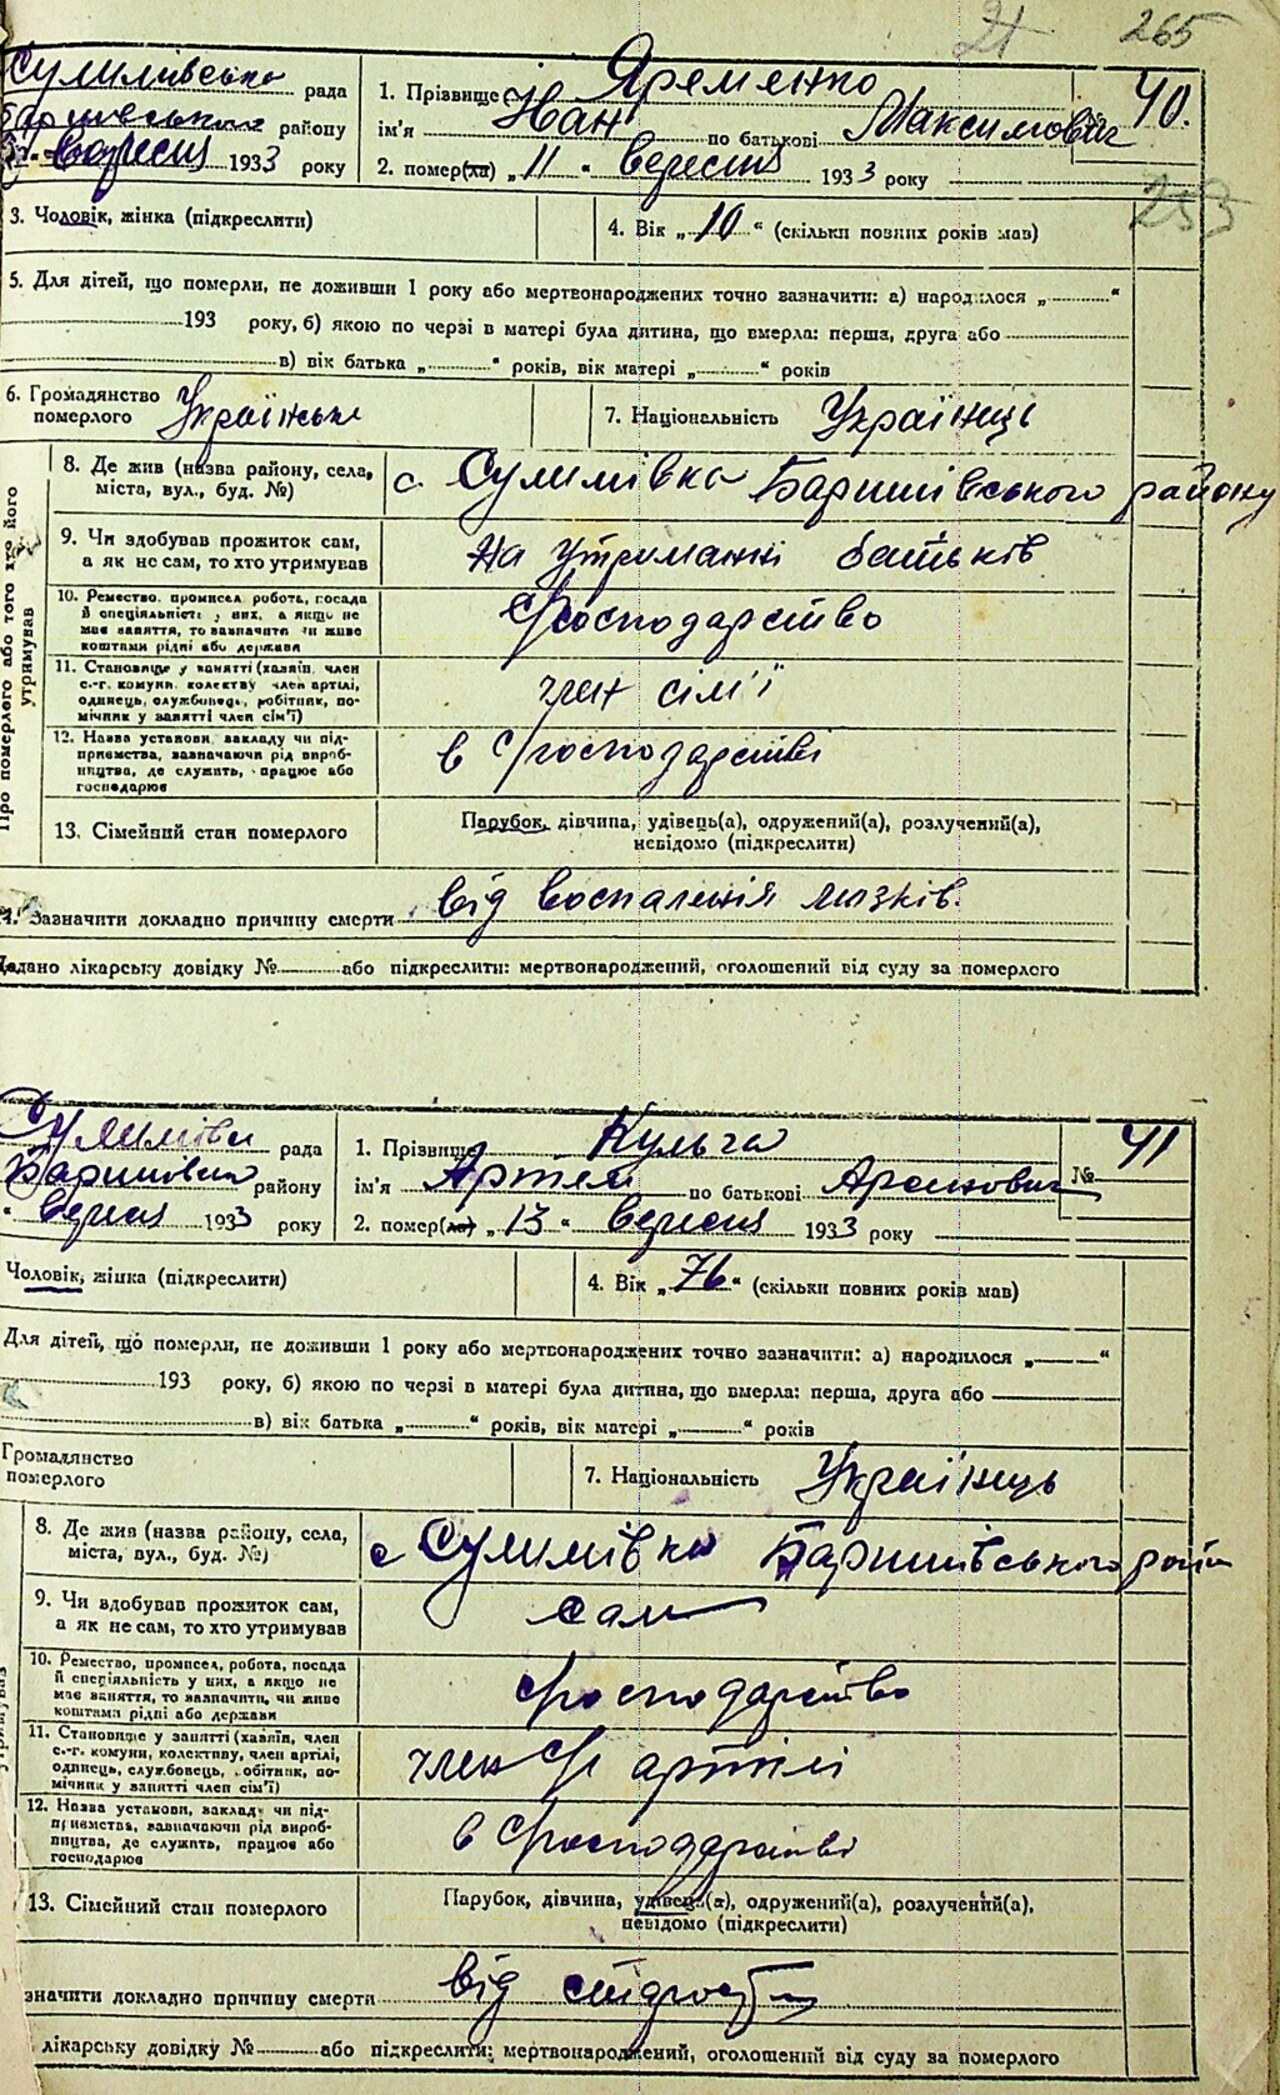 21 265
Сулимівська рада
1. Прізвище Яременко
40.
району
ім'я Іван по батькові Максимович
вересня 1933 року
2. помер(ла) „11“ вересня 1933 року
253
3. Чоловік, жінка (підкреслити)
4. Вік „10“ (скільки повних років мав)
5. Для дітей, що померли, не доживши 1 року або мертвонароджених точно зазначити: а) народилося „ “
193 року, б) якою по черзі в матері була дитина, що вмерла: перша, друга або
в) вік батька „ “ років, вік матері „ “ років
6. Громадянство померлого Українське
7. Національність Українець
Про померлого або того хто його утримував
8. Де жив (назва району, села,
міста, вул., буд. №)
с. Сулимівка Баришівського району
9. Чи здобував прожиток сам,
а як не сам, то хто утримував
На утриманні батьків
10. Ремество, промисел, робота, посада
й спеціяльність у них, а якщо не
має заняття, то зазначити чи живе
коштами рідні або держави
с/господарство
11. Становище у занятті (хазяїн, член
с.-г. комуни, колективу, член артілі,
одинець, службовець, робітник, по-
мічник у занятті член сім'ї)
член сім'ї
12. Назва установи, закладу чи під-
приємства, зазначаючи рід вироб-
ництва, де служить, працює або
господарює
в с/господарстві
13. Сімейний стан померлого
Парубок, дівчина, удівець(а), одружений(а), розлучений(а),
невідомо (підкреслити)
14. Зазначити докладно причину смерти від воспаленія мозків.
Додано лікарську довідку № або підкреслити: мертвонароджений, оголошений від суду за померлого
рада
1. Прізвище Кульга
№ 41
району
ім'я Артем по батькові
1933 року
2. помер(ла) „13“ вересня 1933 року
Чоловік, жінка (підкреслити)
4. Вік „76“ (скільки повних років мав)
Для дітей, що померли, не доживши 1 року або мертвонароджених точно зазначити: а) народилося „ “
193 року, б) якою по черзі в матері була дитина, що вмерла: перша, друга або
в) вік батька „ “ років, вік матері „ “ років
Громадянство
померлого
7. Національність Українець
8. Де жив (назва району, села,
міста, вул., буд. №)
с Сулимівка Баришівського
9. Чи здобував прожиток сам,
а як не сам, то хто утримував
сам
10. Ремество, промисел, робота, посада
й спеціяльність у них, а якщо не
має заняття, то зазначити, чи живе
коштами рідні або держави
с/господарство
11. Становище у занятті (хазяїн, член
с.-г. комуни, колективу, член артілі,
одинець, службовець, робітник, по-
мічник у занятті член сім'ї)
член с/г артілі
12. Назва установи, закладу чи під-
приємства, зазначаючи рід вироб-
ництва, де служить, працює або
господарює
в с/господарстві
13. Сімейний стан померлого
Парубок, дівчина, удівець(а), одружений(а), розлучений(а),
невідомо (підкреслити)
значити докладно причину смерти від
лікарську довідку № або підкреслити: мертвонароджений, оголошений від суду за померлого